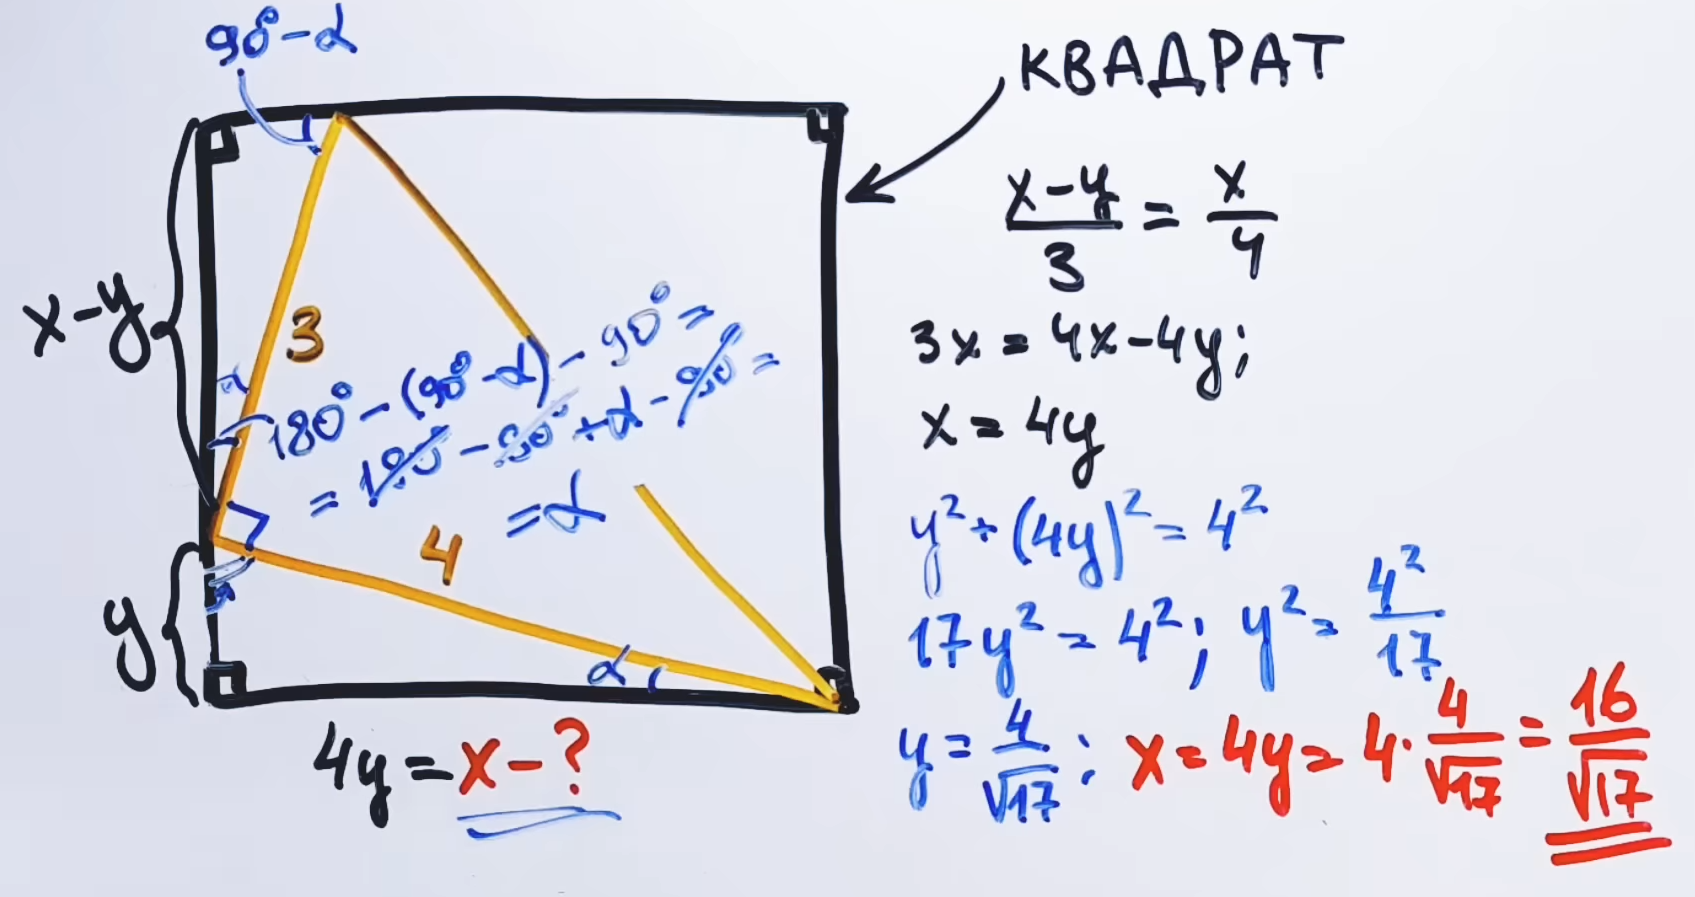 90°-α
КВАДРАТ
x-y
3
180°-(90°-α)-90°=
=180°-90°+α-90°=
=α
4
y
α
4y=x-?
(x-y)/3 = x/4
3x=4x-4y;
x=4y
y²+(4y)²=4²
17y²=4²; y²=4²/17
y=4/√17; x=4y=4·4/√17=16/√17